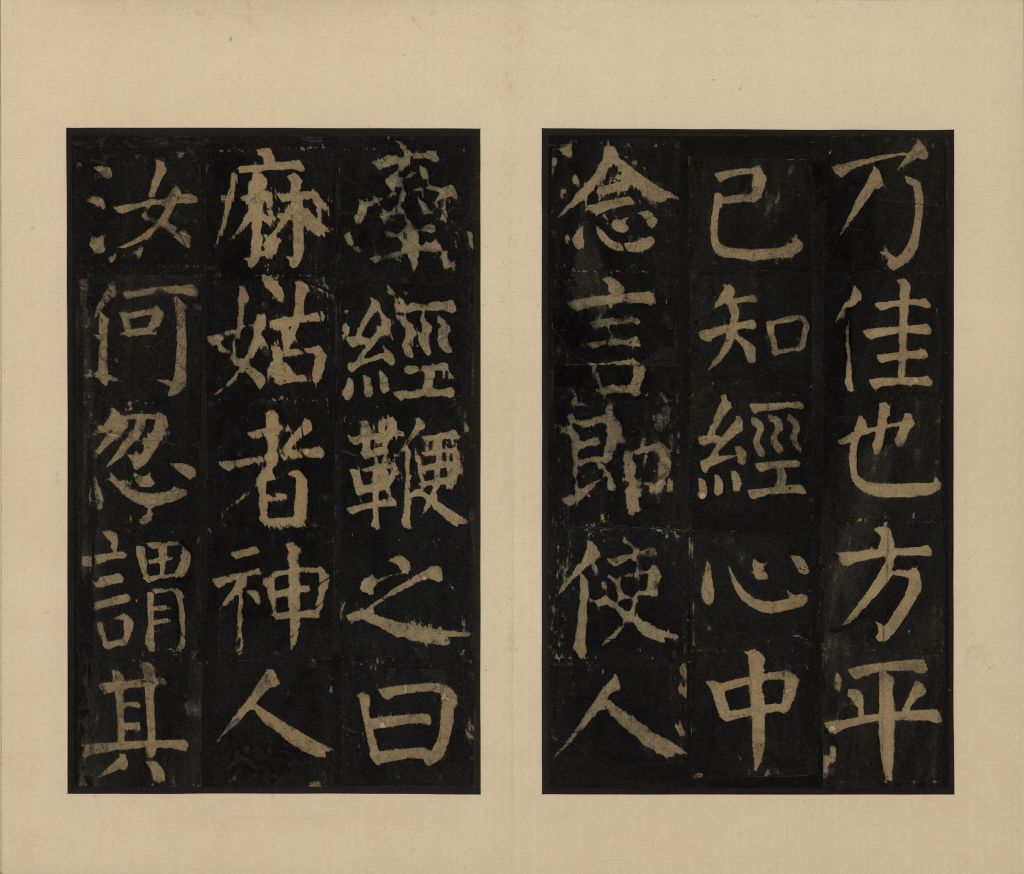 乃佳也方平
已知經心中
念言即使人
牽經鞭之曰
麻姑者神人
汝何忽謂其